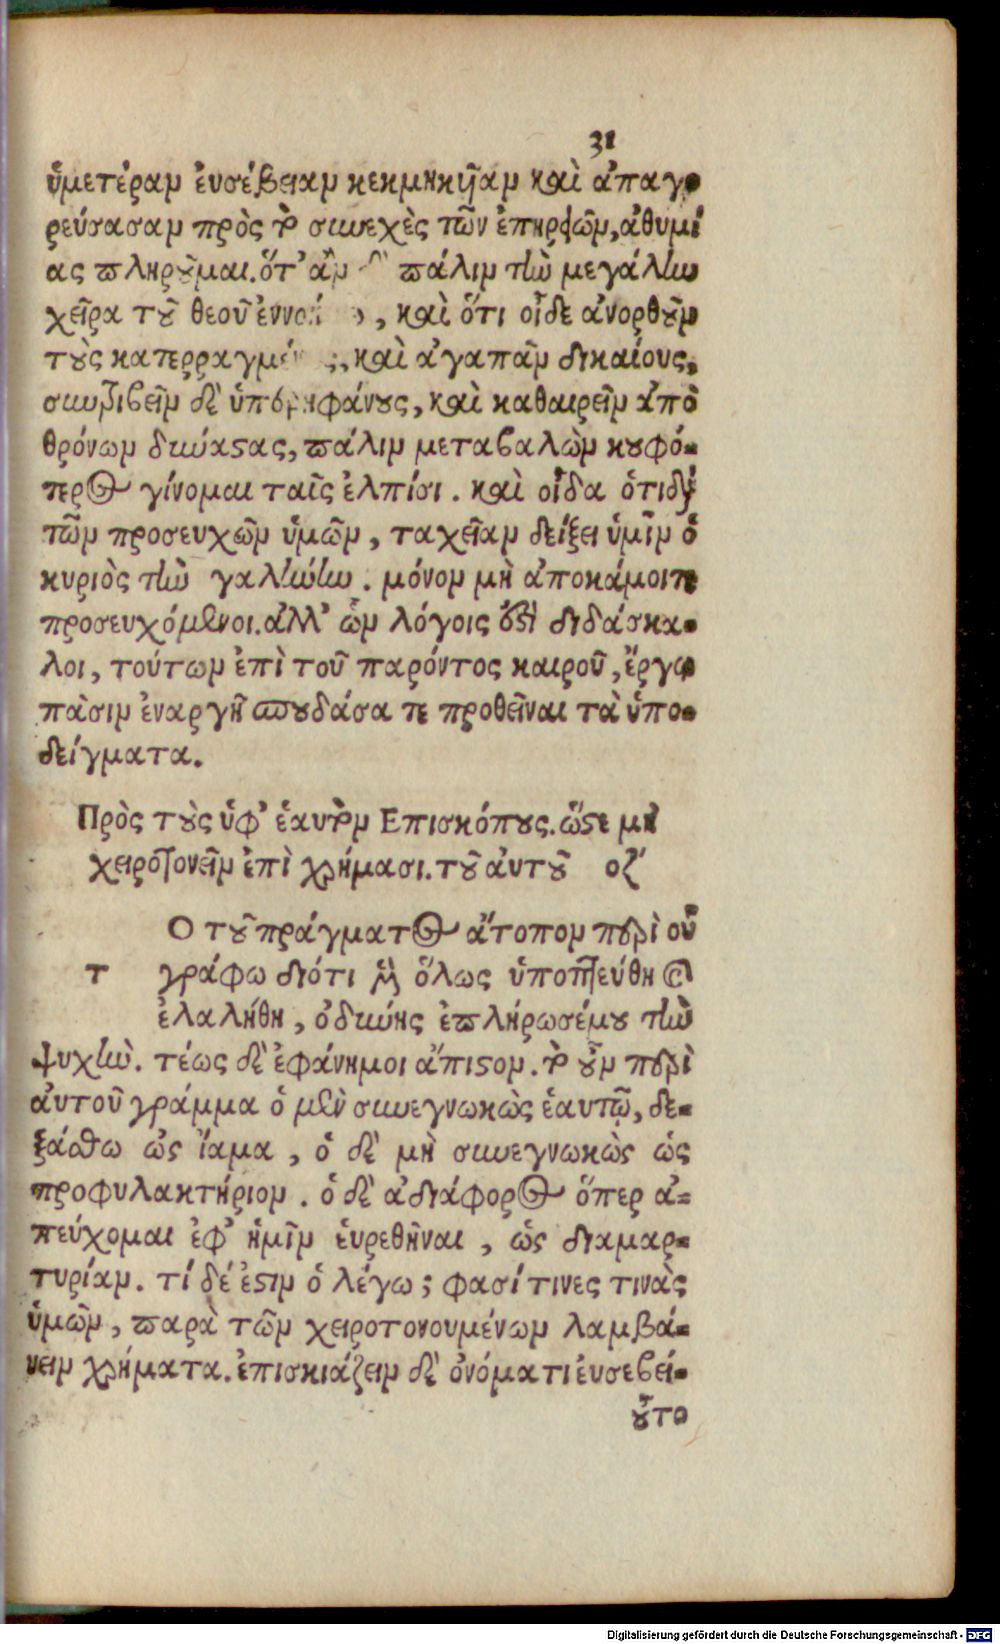 31
ὑμετέραν ἐυσέβειαν κεκμηκῆαν καὶ ἀπαγο
ρεύσασαν πρὸς τὸ συνεχὲς τῶν ἐπηρειῶν, ἀθυμί
ας πληροῦμαι. ὅτ' ἂν δὲ πάλιν τὴν μεγάλην
χεῖρα τοῦ θεοῦ, καὶ ὅτι οἶδε ἀνορθοῦν
τοὺς καὶ ἀγαπᾶν δικαίους,
συντρίβειν δὲ ὑπερηφάνους, καὶ καθαιρεῖν ἀπὸ
θρόνων δυνάστας, πάλιν μεταβαλὼν κουφό-
τερος γίνομαι ταῖς ἐλπίσι. καὶ οἶδα ὅτι διὰ
τῶν προσευχῶν ὑμῶν, ταχεῖαν δείξει ὑμῖν ὁ
κυριὸς τὴν γαλήνην. μόνον μὴ ἀποκάμοιτε
προσευχόμενοι. ἀλλ' ὧν λόγοις ἐστὲ διδάσκα-
λοι, τούτων ἐπὶ τοῦ παρόντος καιροῦ, ἔργω
πᾶσιν ἐναργῆ σπουδάσατε προθεῖναι τὰ ὑπο-
δείγματα.
Πρὸς τοὺς ὑφ' ἑαυτὸν Επισκόπους. ὥστε μὴ
χειροτονεῖν ἐπὶ χρήμασι. τοῦ ἀυτοῦ οζ'
Ο τοῦ πράγματος ἄτοπον περὶ οὗ
τ γράφω διότι μὲν ὅλως ὑποπτεύθη καὶ
ἐλαλήθη, ὀδύνης ἐπλήρωσέ μου τὴν
ψυχὴν. τέως δὲ ἐφάνη μοι ἄπιστον. τὸ οὖν περὶ
ἀυτοῦ γράμμα ὁ μὲν συνεγνωκὼς ἑαυτῷ, δε-
ξάσθω ὡς ἴαμα, ὁ δὲ μὴ συνεγνωκὼς ὡς
προφυλακτήριον. ὁ δὲ ἀδιάφορος ὅπερ ἀ-
πεύχομαι ἐφ' ἡμῖν ἑυρεθῆναι, ὡς διαμαρ-
τυρίαν. τί δέ ἐστιν ὁ λέγω; φασί τινες τινὰς
ὑμῶν, παρὰ τῶν χειροτονουμένων λαμβά-
νειν χρήματα. ἐπισκιάζειν δὲ ὀνόματι ἐυσεβεί-
οὗτο
Digitalisierung gefördert durch die Deutsche Forschungsgemeinschaft - DFG